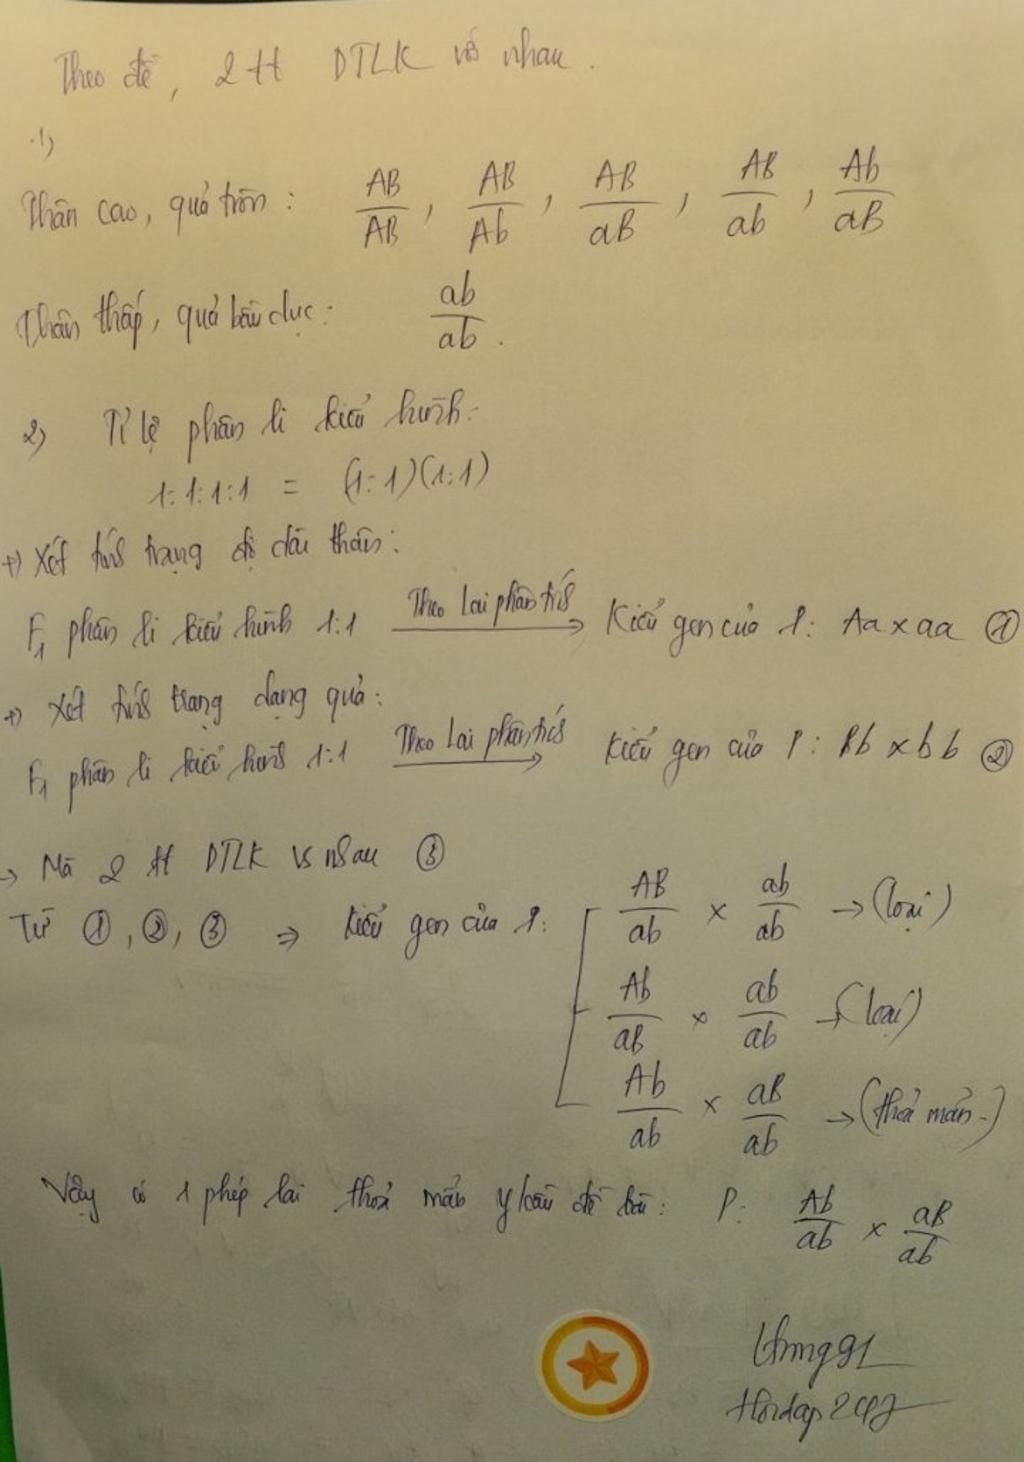 Theo đề, 2 tt DTLK với nhau.
1)
Thân cao, quả tròn: AB/AB, AB/Ab, AB/aB, AB/ab, Ab/aB
Thân thấp, quả bầu dục: ab/ab.
2) Tỉ lệ phân li kiểu hình:
1:1:1:1 = (1:1)(1:1)
+) Xét tính trạng độ dài thân:
F1 phân li kiểu hình 1:1 Theo lai phân tích → Kiểu gen của P: Aa x aa ①
+) Xét tính trạng dạng quả:
F1 phân li kiểu hình 1:1 Theo lai phân tích → Kiểu gen của P: Bb x bb ②
→ Mà 2 tt DTLK vs nhau ③
Từ ①, ②, ③ ⇒ kiểu gen của P:
AB/ab x ab/ab → (loại)
Ab/aB x ab/ab → (loại)
Ab/ab x aB/ab → (thoả mãn.)
Vậy có 1 phép lai thoả mãn y/cầu đề bài: P: Ab/ab x aB/ab